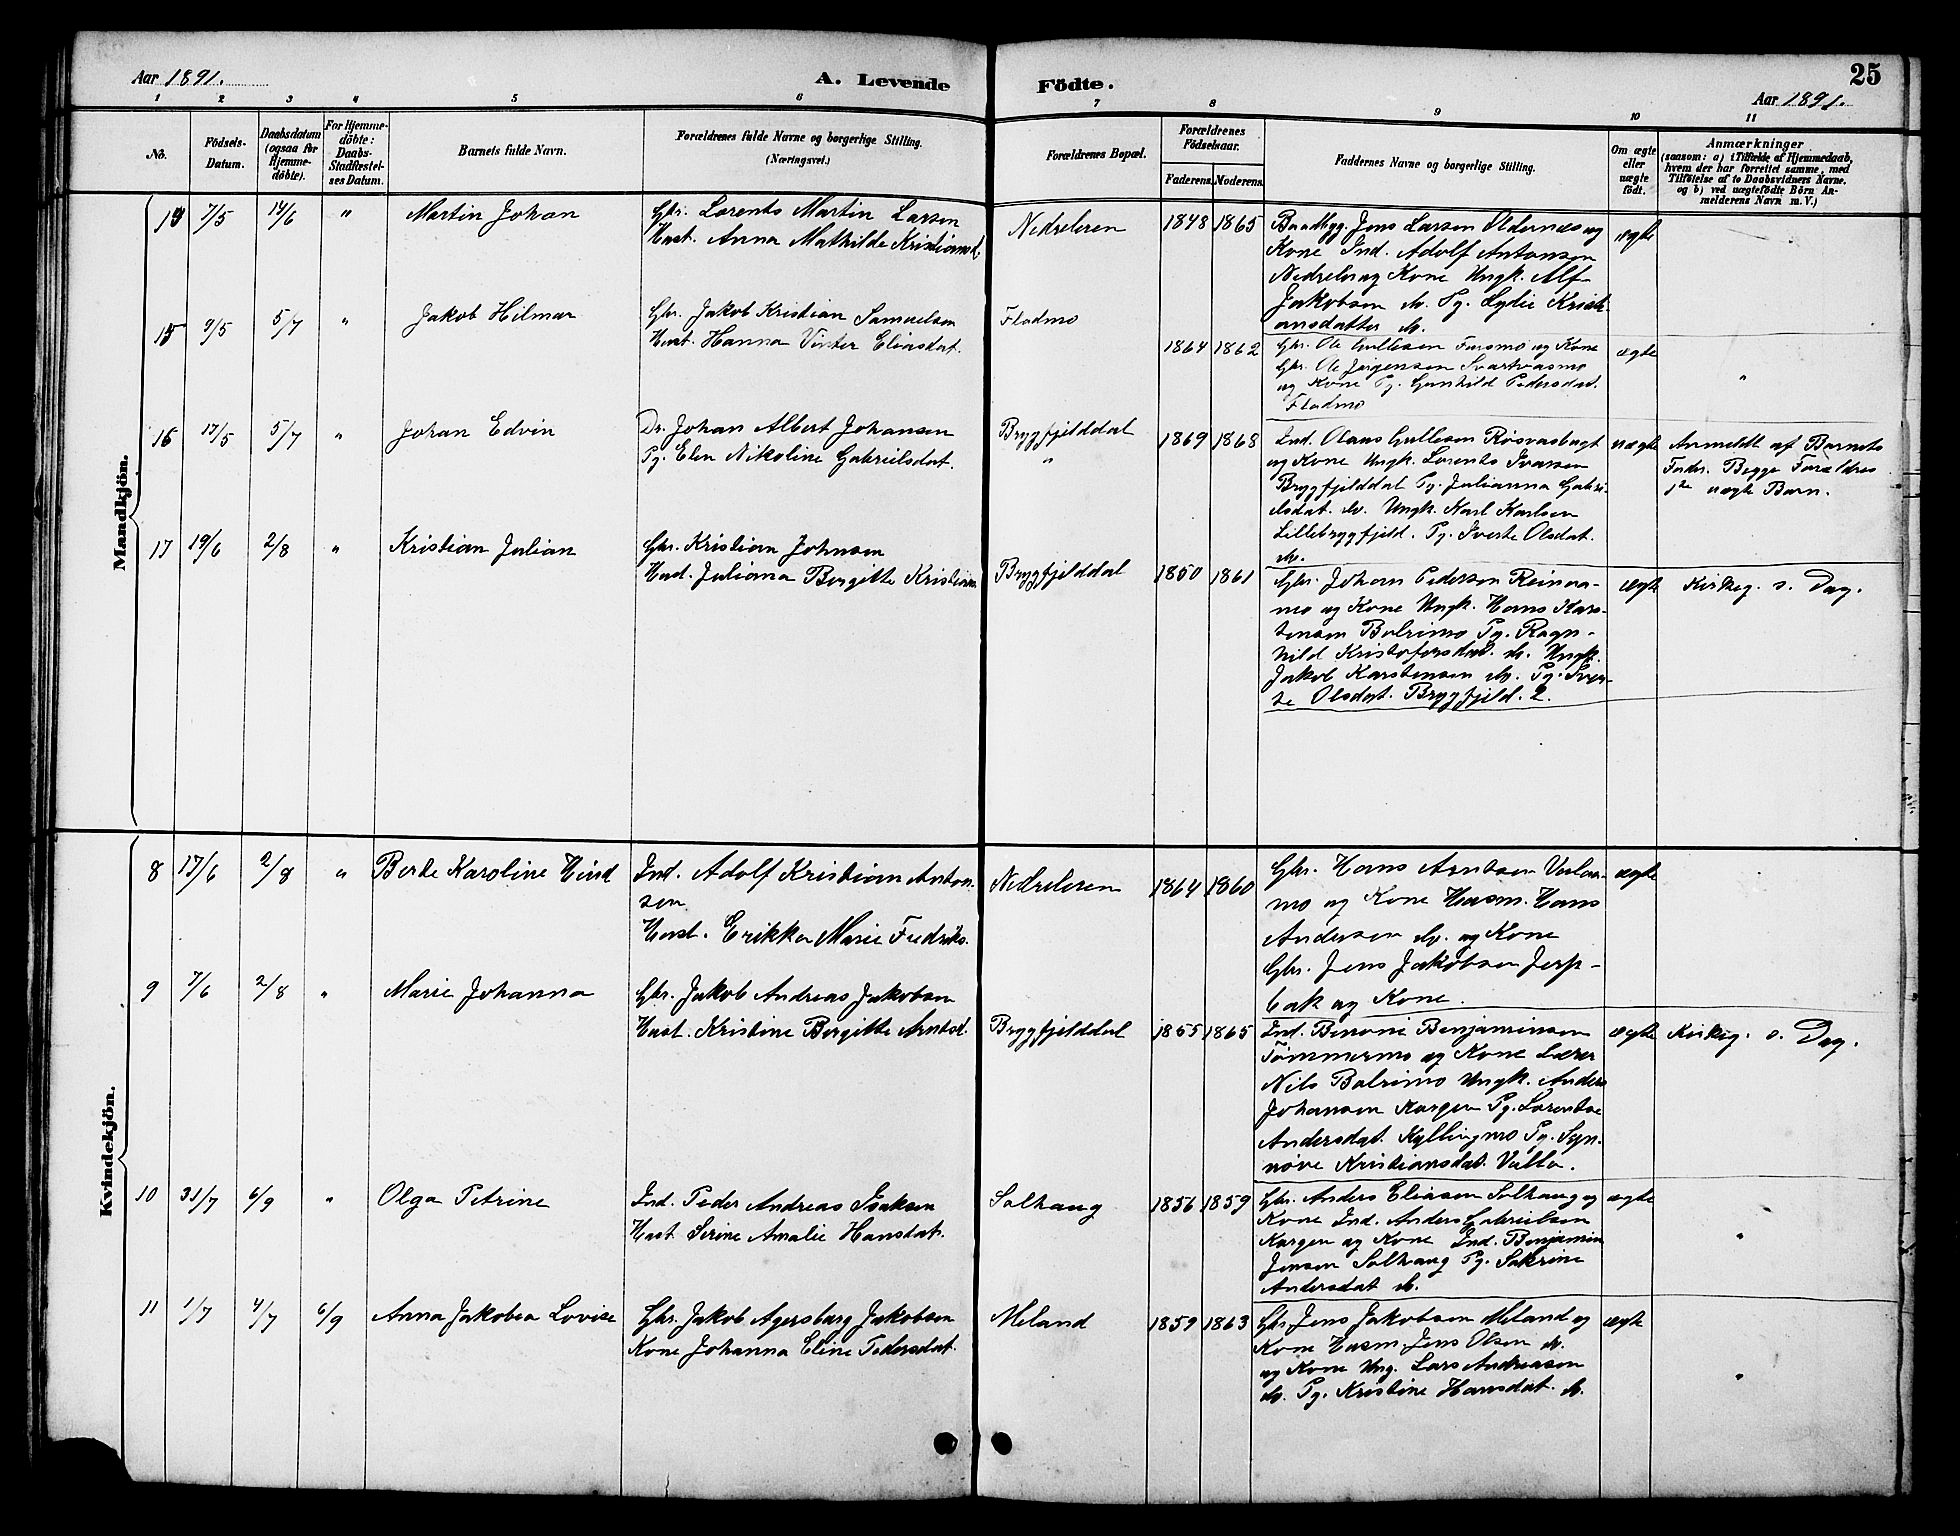 Aar 1891.
A. Levende
Födte.
25
Aar 1891.
1 2 3 4 5 6 7 8 9 10 11
No.
Födsels-
Datum.
Daabsdatum
(ogsaa for
Hjemme-
döbte).
For Hjemme-
döbte:
Daabs-
Stadfæstel-
ses Datum.
Barnets fulde Navn.
Forældrenes fulde Navne og borgerlige Stilling.
(Næringsvei.)
Forældrenes Bopæl.
Forældrenes
Födselsaar.
Faderens. Moderens.
Faddernes Navne og borgerlige Stilling.
Om ægte
eller
uægte
födt.
Anmærkninger
(saasom: a) i Tilfælde af Hjemmedaab,
hvem der har forrettet samme, med
Tilföielse af to Daabsvidners Navne,
og b) ved uægtefödte Börn An-
melderens Navn m. V.)
Mandkjön.
14 7/5 14/6 " Martin Johan
Gbr. Lorents Martin Larsen
Hust. Anna Mathilde Kristiansd.
Nedreleren 1848 1865
Baadbyg. Jens Larsen Oldernes og
Kone Ind. Adolf Antonsen
Nedreler og Kone Ungk. Alf
Jakobsen do. Pg. Lydie Kristi-
ansdatter do.
ægte
15 9/5 5/7 " Jakob Hilmar
Gbr. Jakob Kristian Samuelsen
Hust. Hanna Vinter Eliasdat.
Fladmo
1864 1862
Gbr. Ole Gullesen Fusmo og Kone
Gbr. Ole Jörgensen Svartvasmo
og Kone Pg. Gunhild Pedersdat.
Fladmo
ægte "
16 17/5 5/7 " Johan Edvin
Dr. Johan Albert Johansen
Pg. Elen Nikoline Gabrielsdat.
Brygfjelddal
"
1869 1868
Ind. Olaus Gullesen Røsvasbugt
og Kone Ungk. Lorents Ivarsen
Brygfjelddal Pg. Julianna Gabri-
elsdat. do. Ungk. Karl Karlsen
Lillebrygfjeld. Pg. Sverte Olsdat.
do.
uægte
Anmeldt af Barnets
Fader. Begge Forældres
1ste uægte Barn.
17 19/6 2/8 " Kristian Julian
Gbr. Kristian Johnsen
Hust. Juliana Bergitte Kristian
Brygfjelddal 1850 1861
Gbr. Johan Pedersen Reinaa-
mo og Kone Ungk. Hans Kars-
tensen Bolrimo Pg. Ragn-
hild Kristofersdat. do. Ungk.
Jakob Karstensen do. Pg. Sver-
te Olsdat. Brygfjeld. 2.
ægte Kirkeg. s. Dag.
Kvindekjön.
8 17/6 2/8 " Berte Karoline Hind
Ind. Adolf Kristian Anton-
sen
Hust. Erikka Marie Fredriks.
Nedreleren 1864 1860
Gbr. Hans Arntsen
mo og Kone Husm. Hans
Andersen do. og Kone
Gbr. Jens Jakobsen Jerp-
bak og Kone.
ægte
9 7/6 2/8 " Marie Johanna
Gbr. Jakob Andreas Jakobsen
Hust. Kristine Bergitte Arntsd.
Brygfjelddal 1855 1865
Ind. Benoni Benjaminsen
Tømmermo og Kone Lærer
Nils Bolrimo Ungk. Anders
Johansen Korgen Pg. Lorentse
Andersdat. Kyllingmo Pg. Syn-
növe Kristiansdat. Valla.
ægte Kirkeg. s. Dag.
10 31/7 6/9 " Olga Petrine
Ind. Peder Andreas Isaksen
Hust. Serine Amalie Hansdat.
Solhaug 1856 1859
Gbr. Anders Eliasen Solhaug og
Kone Ind. Anders Gabrielsen
Korgen og Kone Ind. Benjamin
Jensen Solhaug Pg. Sakrine
Andersdat do.
ægte "
11 1/7 4/7 6/9 Anna Jakobea Lovise
Gbr. Jakob Agersborg Jakobsen
Kone Johanna Eline Pedersdat.
Meland 1859 1863
Gbr. Jens Jakobsen Meland og
Kone Husm. Jens Olsen do.
og Kone Ung. Lars Andreasen
do. Pg. Kristine Hansdat. do.
ægte "